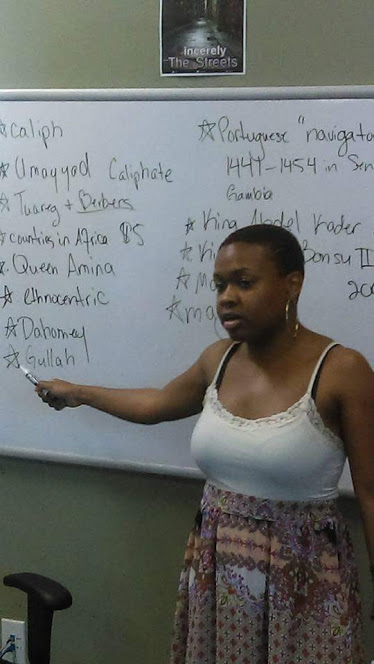 incerely
The Streets
☆ caliph
☆ Umayyad Caliphate
☆ Tuareg + Berbers
☆ countries in Africa
☆ Queen Amina
☆ ethnocentric
☆ Dahomey
☆ Gullah
☆ Portuguese "navigato
1441-1454 in Sen
Gambia
☆ King Abdel Kader
☆ Ki Bonsu II
☆ M
☆ ma